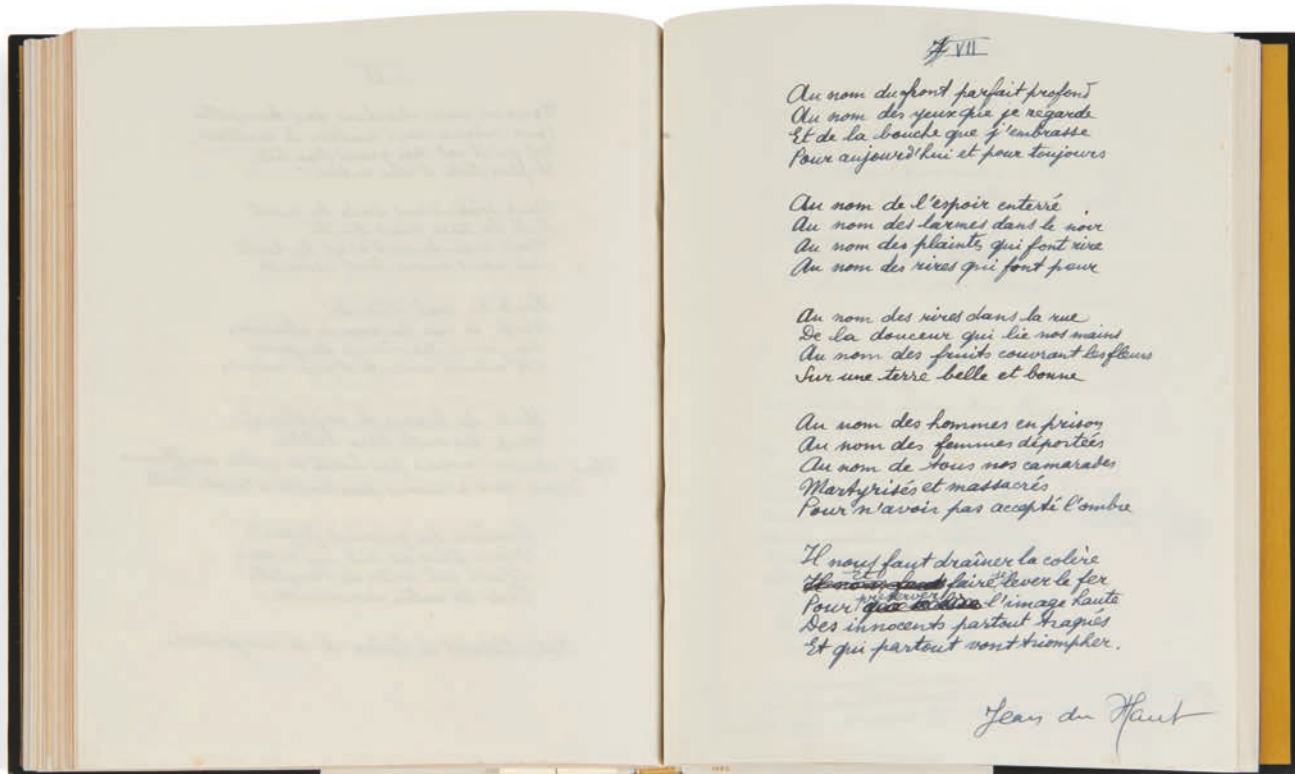 VII
Au nom du front parfait profond
Au nom des yeux que je regarde
Et de la bouche que j'embrasse
Pour aujourd'hui et pour toujours
Au nom de l'espoir enterré
Au nom des larmes dans le noir
Au nom des plaintes qui font rire
Au nom des rires qui font peur
Au nom des rires dans la rue
De la douceur qui lie nos mains
Au nom des fruits couvrant les fleurs
Sur une terre belle et bonne
Au nom des hommes en prison
Au nom des femmes déportées
Au nom de tous nos camarades
Martyrisés et massacrés
Pour n'avoir pas accepté l'ombre
Il nous faut draîner la colère
Et faire lever le fer
Pour préserver l'image haute
Des innocents partout traqués
Et qui partout vont triompher.
Jean du Haut